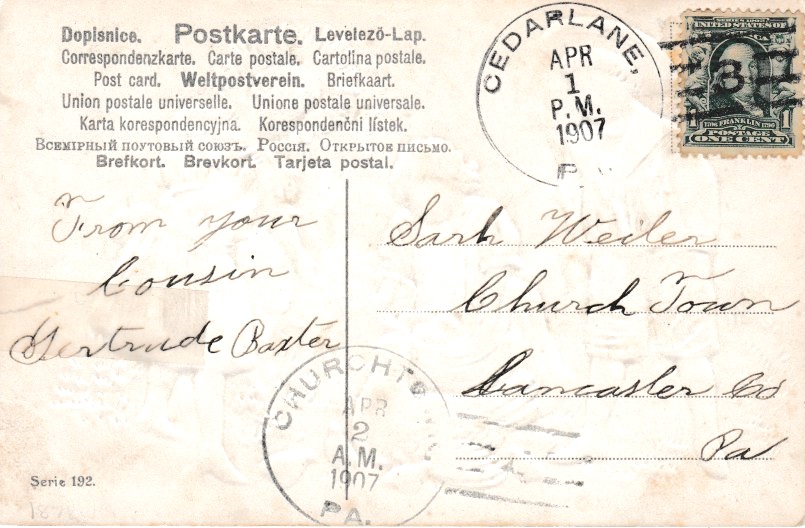 Dopisnice. Postkarte. Levelező-Lap.
Correspondenzkarte. Carte postale. Cartolina postale.
Post card. Weltpostverein. Briefkaart.
Union postale universelle. Unione postale universale.
Karta korespondencyjna. Korespondenční lístek.
Всемірный почтовый союзъ. Россія. Открытое письмо.
Brefkort. Brevkort. Tarjeta postal.
CEDARLANE,
APR
1
P.M.
1907
SERIES 1902
UNITED STATES OF
AMERICA
3
1706 FRANKLIN 1790
1 POSTAGE 1
ONE CENT
From your
Cousin
Gertrude Baxter
Sarh Weiler
Church Town
Lancaster Co
Pa
CHURCHTO
APR
2
A.M.
1907
PA.
Serie 192.